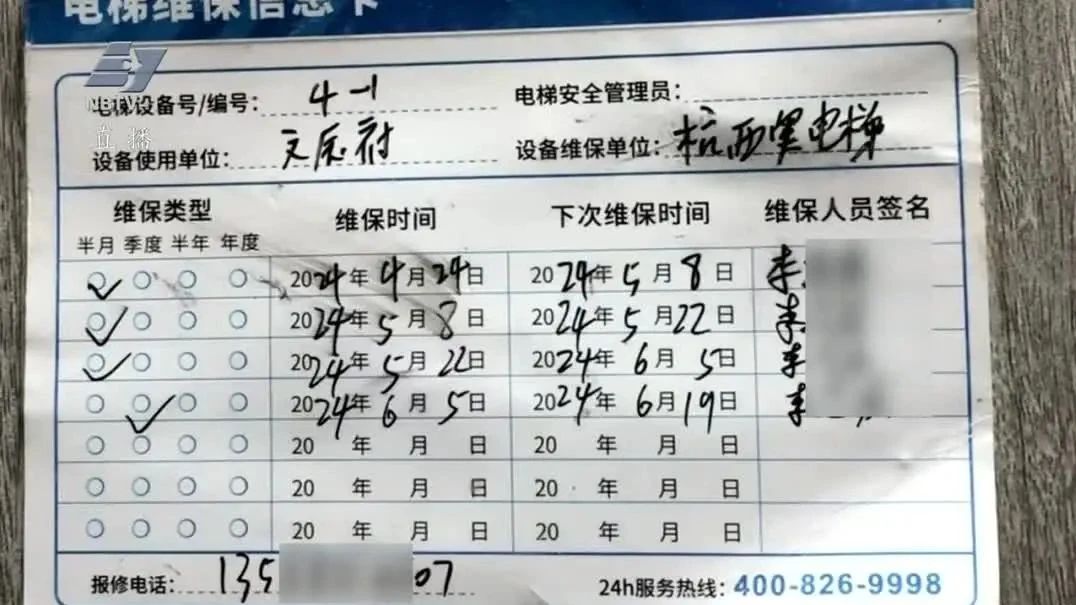 电梯维保信息卡
NBTV
直播
电梯设备号/编号: 4-1 电梯安全管理员:
设备使用单位: 文辰府 设备维保单位: 杭西奥电梯
维保类型 维保时间 下次维保时间 维保人员签名
半月 季度 半年 年度
2024年4月24日 2024年5月8日 李
2024年5月8日 2024年5月22日 李
2024年5月22日 2024年6月5日 李
2024年6月5日 2024年6月19日 李
20 年 月 日 20 年 月 日
20 年 月 日 20 年 月 日
20 年 月 日 20 年 月 日
报修电话: 135 07 24h服务热线: 400-826-9998